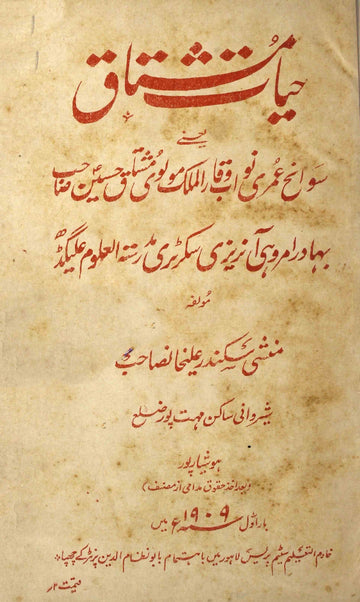 حیات مشتاق
یعنے
سوانح عمری نواب وقار الملک مولوی مشتاق حسین صاحب
بہادر امروہی آنریری سکرٹری مدرستہ العلوم علیگڈہ
مولفہ
منشی سکندر علیخانصاحب
شیروانی ساکن مہت پور ضلع
ہوشیارپور
(بعد اخذ حقوق مدامی از مصنف)
بار اول سنہ ۱۹۰۹ء میں
خادم التعلیم سٹیم پریس لاہور میں باہتمام بابو نظام الدین پرنٹر کے چھپا
قیمت ۲ر